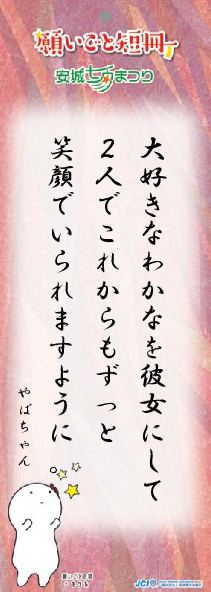 願いごと短冊
安城七夕まつり
大好きなわかなを彼女にして
２人でこれからもずっと
笑顔でいられますように
やばちゃん
JCI